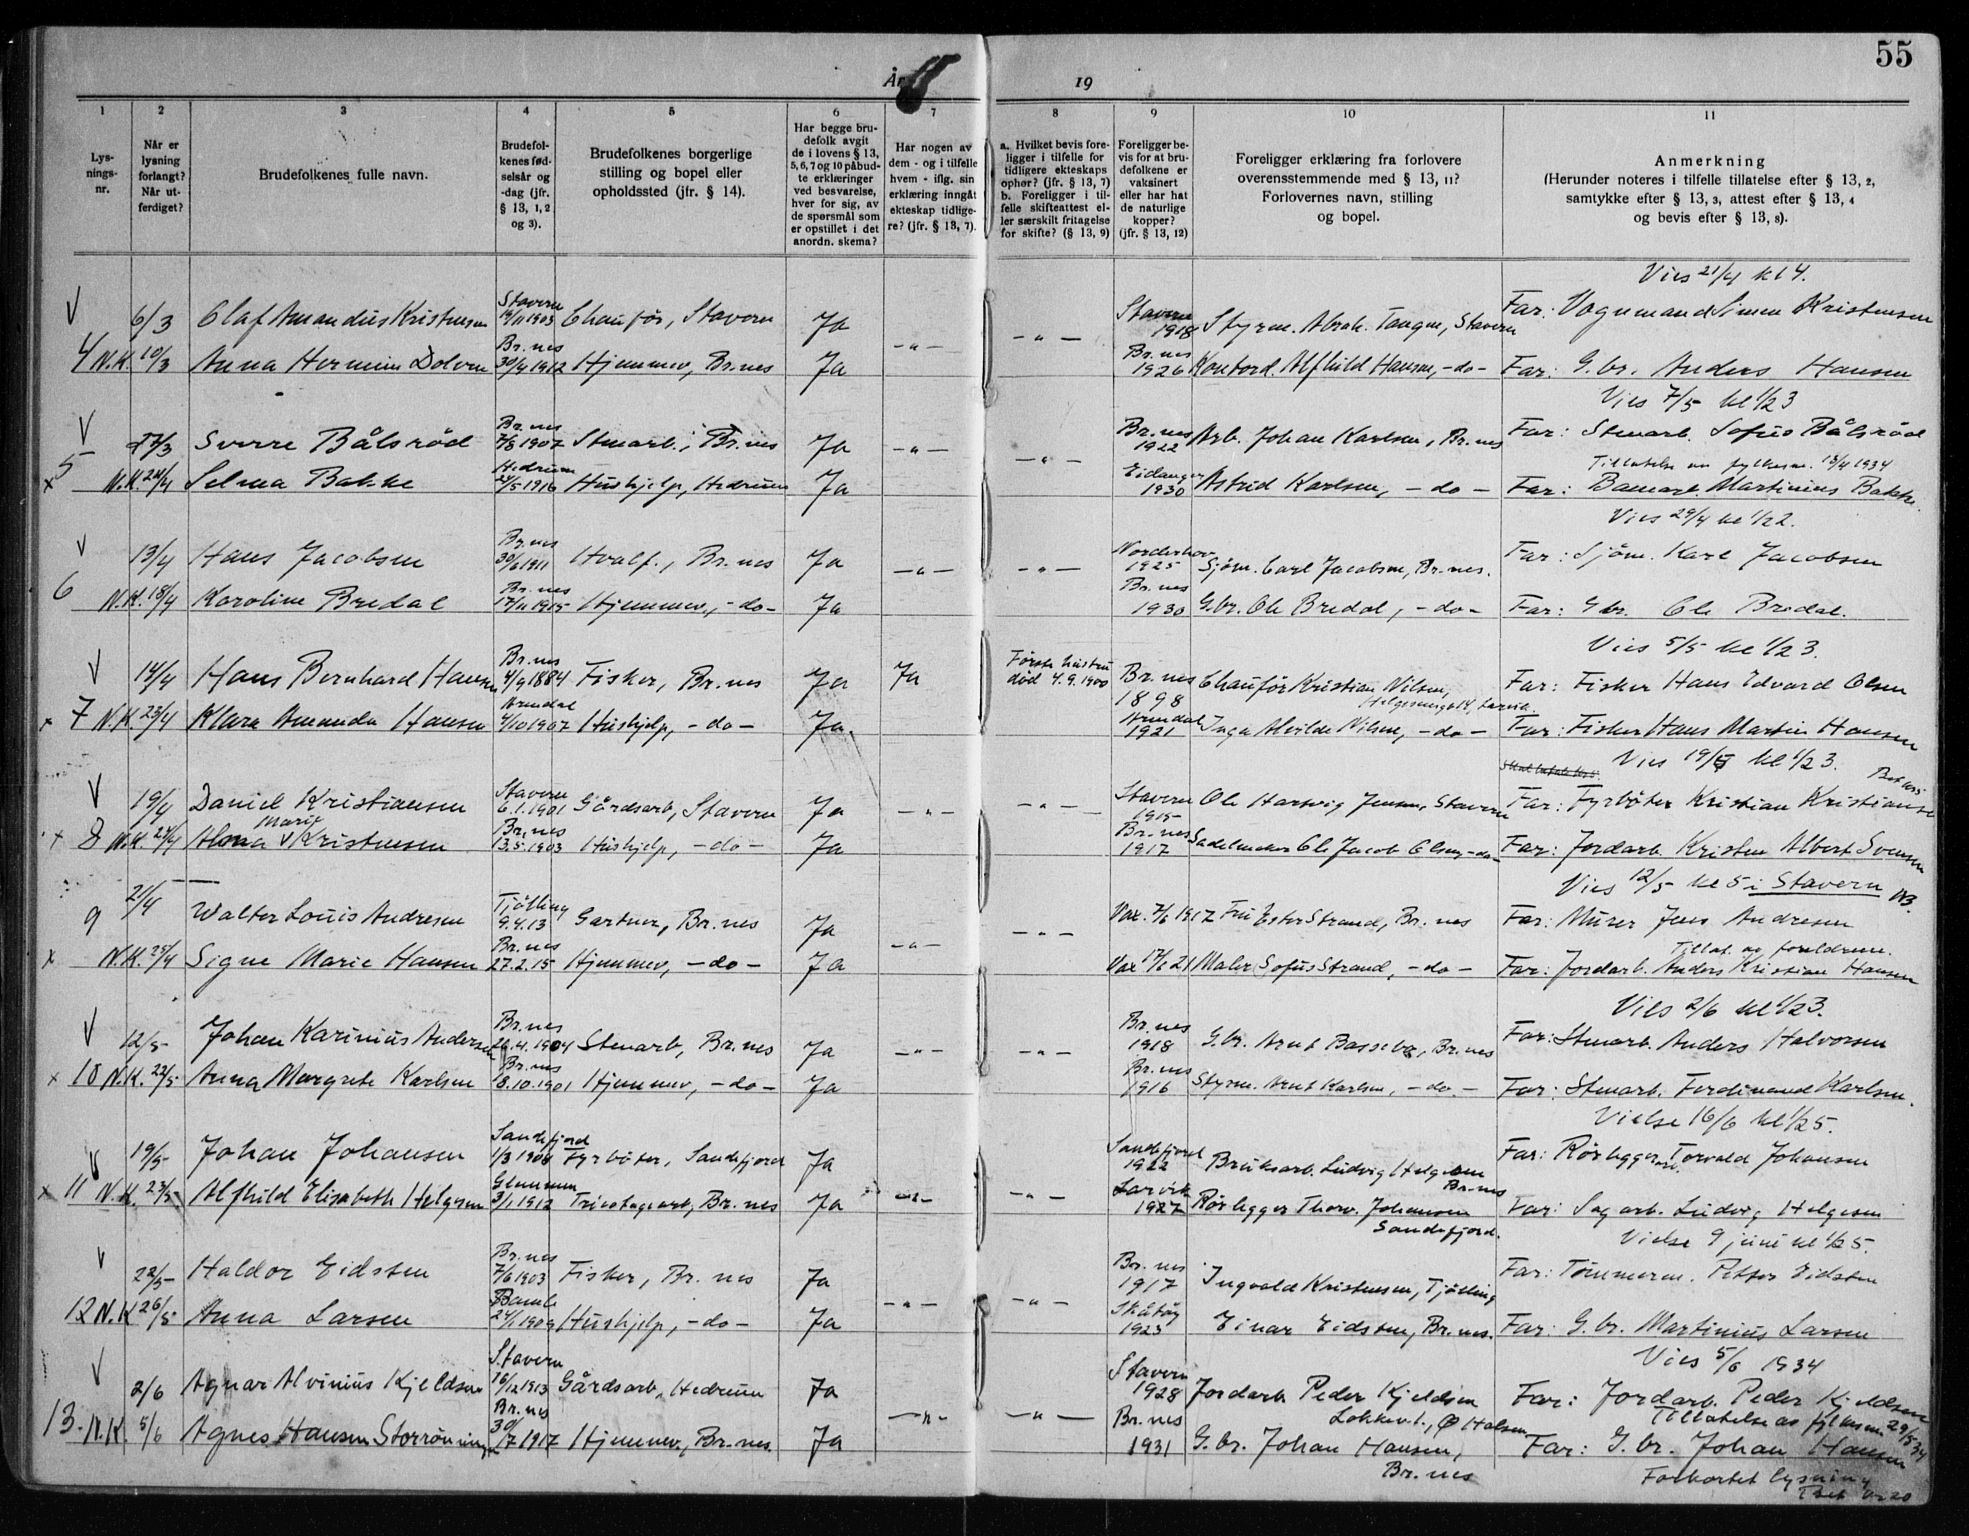 55
År 19
1 2 3 4 5 6 7 8 9 10 11
Lys-
nings-
nr.
Når er
lysning
forlangt?
Når ut-
ferdiget?
Brudefolkenes fulle navn.
Brudefol-
kenes fød-
selsår og
-dag (jfr.
§ 13, 1, 2
og 3).
Brudefolkenes borgerlige
stilling og bopel eller
opholdssted (jfr. § 14).
Har begge bru-
defolk avgit
de i lovens § 13,
5, 6, 7 og 10 påbud-
te erklæringer
ved besvarelse,
hver for sig, av
de spørsmål som
er opstillet i det
anordn. skema?
Har nogen av
dem - og i tilfelle
hvem - iflg. sin
erklæring inngåt
ekteskap tidlige-
re? (jfr. § 13, 7).
a. Hvilket bevis fore-
ligger i tilfelle for
tidligere ekteskaps
ophør? (jfr. § 13, 7)
b. Foreligger i til-
felle skifteattest el-
ler særskilt fritagelse
for skifte? (§ 13, 9)
Foreligger be-
vis for at bru-
defolkene er
vaksinert
eller har hat
de naturlige
kopper?
(jfr. § 13, 12)
Foreligger erklæring fra forlovere
overensstemmende med § 13, 11?
Forlovernes navn, stilling
og bopel.
Anmerkning
(Herunder noteres i tilfelle tillatelse efter § 13, 2,
samtykke efter § 13, 3, attest efter § 13, 4
og bevis efter § 13, 8).
Vies 21/4 kl 4.
6/3 Olaf Amandus Kristensen Stavern 1903 Chaufför, Stavern Ja Stavern 1918 Styrm. Abrah. Tangen, Stavern Far: Vognmand Simen Kristensen
4 N.K. 10/3 Anna Hermine Dolven Br.nes 30/4 1912 Hjemmev, Br.nes Ja - " - - " - Br.nes 1926 Kontord. Alfhild Hansen, - do - Far: G.br. Anders Hansen
Vies 7/5 kl 1/2 3
Sverre Bålsrød Br.nes 7/8 1907 Stenarb., Br.nes Ja - " - Br.nes 1922 Arb. Johan Karlsen, Br.nes Far: Stenarb. Sofus Bålsrød
Tillatelse av fylkesm. 13/4 1934
5 N.K. 24/4 Selma Bakke Hedrum 1916 Hushjelp, Hedrum Ja - " - Eidanger 1930 Astrid Karlsen, - do - Far: Martinius Bakke.
Vies 29/4 kl 1/2 2.
13/4 Hans Jacobsen Br.nes 30/6 1911 Hvalf., Br.nes Ja - " - - " - Norderhov 1925 Sjöm. Carl Jacobsen, Br.nes. Far: Sjöm. Karl Jacobsen
6 N.K. 18/4 Karoline Bredal Br.nes 17/11 1915 Hjemmev, - do - Ja Br.nes 1930 G.br. Ole Bredal, - do - Far: G.br. Ole Bredal.
Vies 5/5 kl 1/2 3.
14/4 Hans Bernhard Hansen Br.nes 4/9 1884 Fisker, Br.nes Ja Ja Første hustru død 4.9.1900 Br.nes 1898 Chaufför Kristian Nilsen, Larvik. Far: Fisker Hans Edvard Olsen
7 N.K. 23/4 Klara Amanda Hansen Arendal 4/10 1907 Hushjelp, - do - Ja Arendal 1921 Inga Alvilde Nilsen, - do - Far: Fisker Hans Martin Hansen
Vies 19/5 kl 1/2 3.
19/4 Daniel Kristiansen Stavern 6.1.1901 Gårdsarb, Stavern Ja - " - - " - Stavern 1915 Ole Hartvig Jensen, Stavern Far: Fyrbøter Kristian Kristiansen
8 N.K. 27/4 Alma Marie Kristensen Br.nes 13.5.1903 Hushjelp, - do - Ja Br.nes 1917 Sadelmaker Ole Jacob Olsen, - do - Far: Jordarb. Kristen Albert Svensen
Vies 12/5 kl 5 i Stavern NB.
9 21/4 Walter Louis Andresen Tjølling 9.4.13 Gartner, Br.nes Ja Vax. 7/6 1917 Fru Ester Strand, Br.nes Far: Murer Jens Andresen
Tillat. av foreldrene.
N.K. 25/4 Signe Marie Hansen Br.nes 27.2.15 Hjemmev, - do - Ja - " - - " - Vax 17/6 21 Maler Sofus Strand, - do - Far: Jordarb. Anders Kristian Hansen
Vies 2/6 kl 1/2 3.
12/5 Johan Karinius Andersen Br.nes 4.1904 Stenarb, Br.nes Ja - " - - " - Br.nes 1918 G.br. Arnt Bassebo, Br.nes Far: Stenarb. Anders Halvorsen
10 N.K. 22/5 Anna Margrete Karlsen Br.nes 8.10.1901 Hjemmev, - do - Ja Br.nes 1916 Styrm. Arnt Karlsen, - do - Far: Stenarb. Ferdinand Karlsen.
Vielse 16/6 kl 1/2 5.
19/5 Johan Johansen Sandefjord 1/3 1908 Fyrbøter, Sandefjord Ja Sandefjord 1922 Bruksarb. Ludvig Helgesen Br.nes Far: Rørlegger Torvald Johansen
11 N.K. 23/5 Alfhild Elisabeth Helgesen Glemmen 3/1 1912 Tricotagearb, Br.nes Ja - " - - " - Larvik 1927 Rörlegger Thorv. Johansen Sandefjord. Far: Sagarb. Ludvig Helgesen
Vielse 9 juni kl 1/2 5.
22/5 Haldor Eidsten Br.nes 7/6 1903 Fisker, Br.nes Ja Br.nes 1917 Ingvald Kristensen, Tjølling Far: Tømmerm. Petter Eidsten
12 N.K 26/5 Anna Larsen Bamle 24/1 1909 Hushjelp, - do - Ja - " - - " - Skåtøy 1923 Einar Eidsten, Br.nes. Far: G.br. Martinius Larsen
Vies 5/6 1934
2/6 Agnar Alvinius Kjeldsen Stavern 16/12 1913 Gårdsarb, Hedrum Ja Stavern 1928 Jordarb. Peder Kjeldsen Ø Halsen Far: Jordarb. Peder Kjeldsen
Tillatelse av fylkesm. 29/5 34
13 N.K. 5/6 Agnes Hansen Storrønningen Br.nes 30/7 1917 Hjemmev, Br.nes Ja - " - - " - Br.nes 1931 G.br. Johan Hansen, Br.nes Far: G.br. Johan Hansen
Forkortet lysning